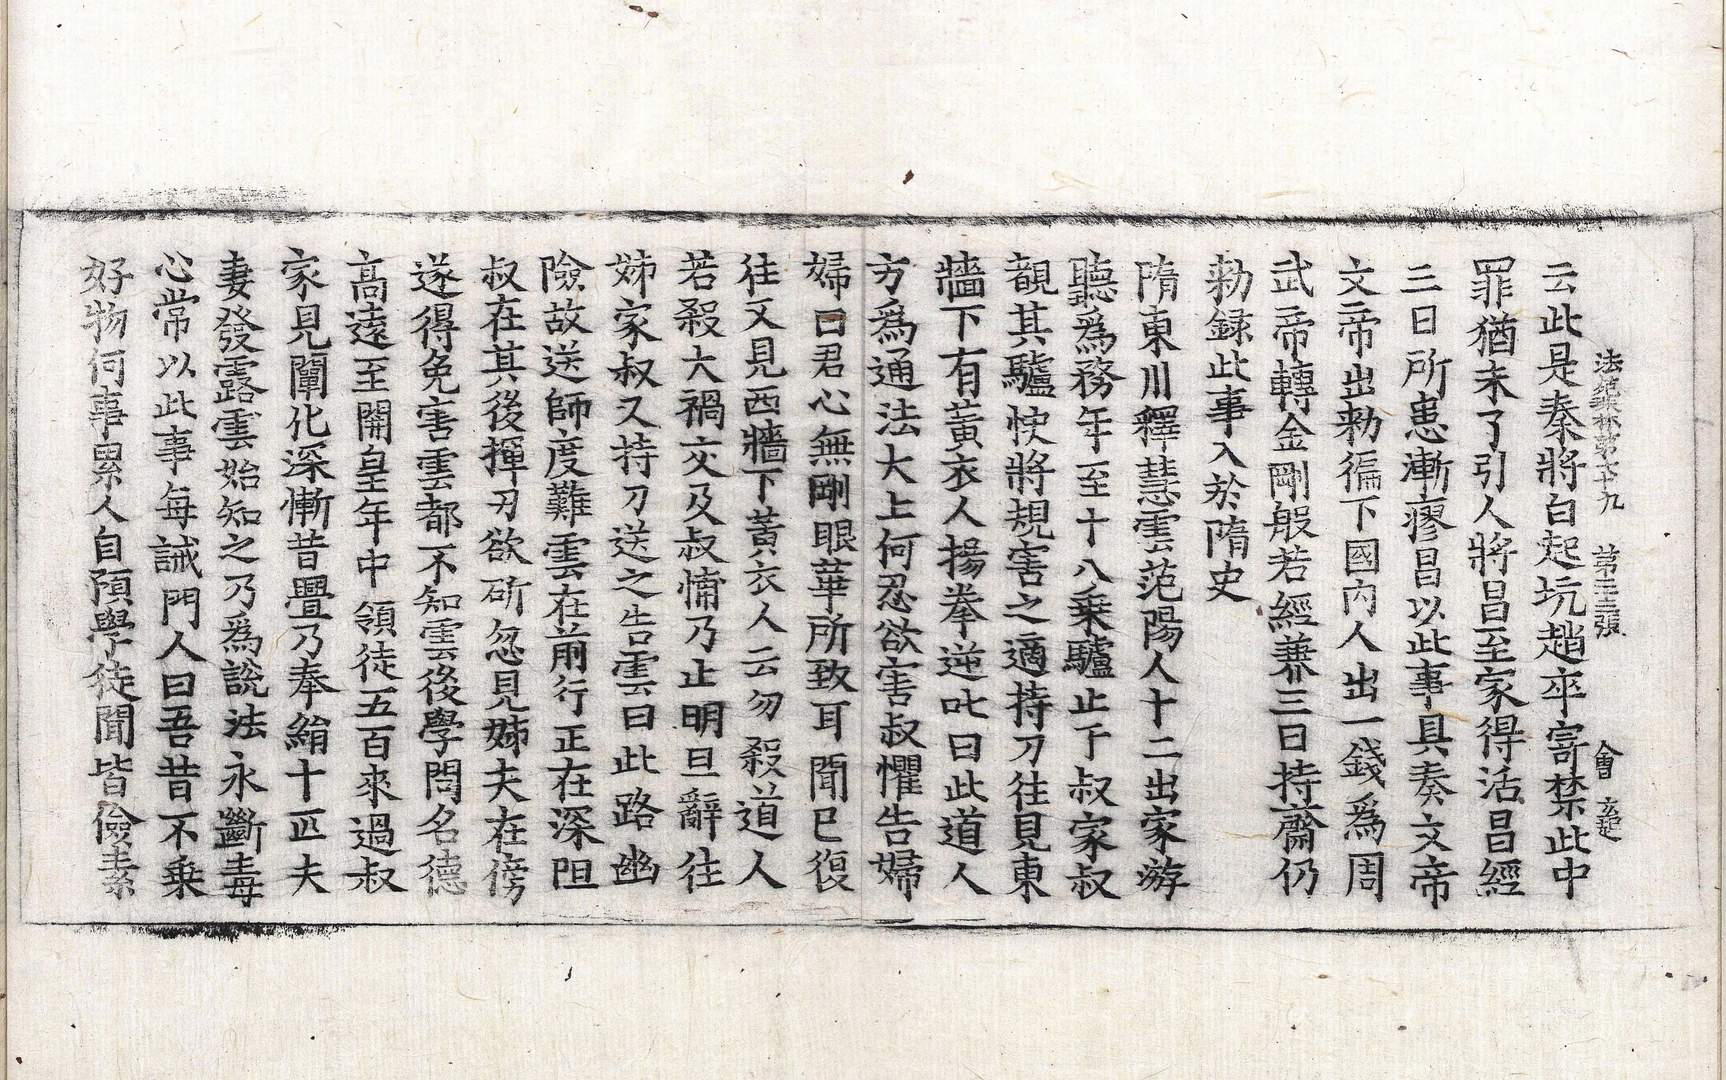 法苑珠林第七十九 第三十三張 會 玄起
云此是秦將白起坑趙卒寄禁此中
罪猶未了引人將昌至家得活昌經
三日所患漸瘳昌以此事具奏文帝
文帝出勑徧下國內人出一錢爲周
武帝轉金剛般若經兼三日持齋仍
勑録此事入於隋史
隋東川釋慧雲范陽人十二出家游
聽爲務年至十八乗驢止于叔家叔
覩其驢快將規害之適持刀往見東
牆下有黃衣人揚拳逆叱曰此道人
方爲通法大士何忍欲害叔懼告婦
婦曰君心無剛眼華所致耳聞已復
往又見西牆下黃衣人云勿殺道人
若殺大禍交及叔慵乃止明旦辭往
姊家叔又持刀送之告雲曰此路幽
險故送師度難雲在前行正在深阻
叔在其後揮刃欲斫忽見姊夫在傍
遂得免害雲都不知雲後學問名德
高遠至開皇年中領徒五百來過叔
家見闡化深慚昔舋乃奉絹十匹夫
妻發露雲始知之乃爲說法永斷毒
心常以此事每誡門人曰吾昔不乗
好物何事累人自預學徒聞皆儉素